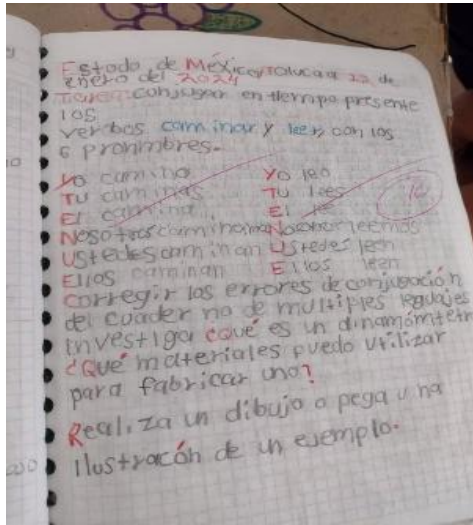 Estado de México, Toluca a 22 de
enero del 2024
Tarea: conjugar en tiempo presente
los
verbos caminar y leer, con los
6 pronmbres.
Yo camino Yo leo
Tu caminas Tu lees
El camina El lee
Nosotros caminamos Nosotros leemos
Ustedes caminan Ustedes leen
Ellos caminan Ellos leen
Corregir los errores de conjugación
del cuader no de multiples leguajes
Investiga ¿qué es un dinamómtetr
¿Qué materiales puedo utilizar
para fabricar uno?
Realiza un dibujo o pega una
ilustracón de un ejemplo.